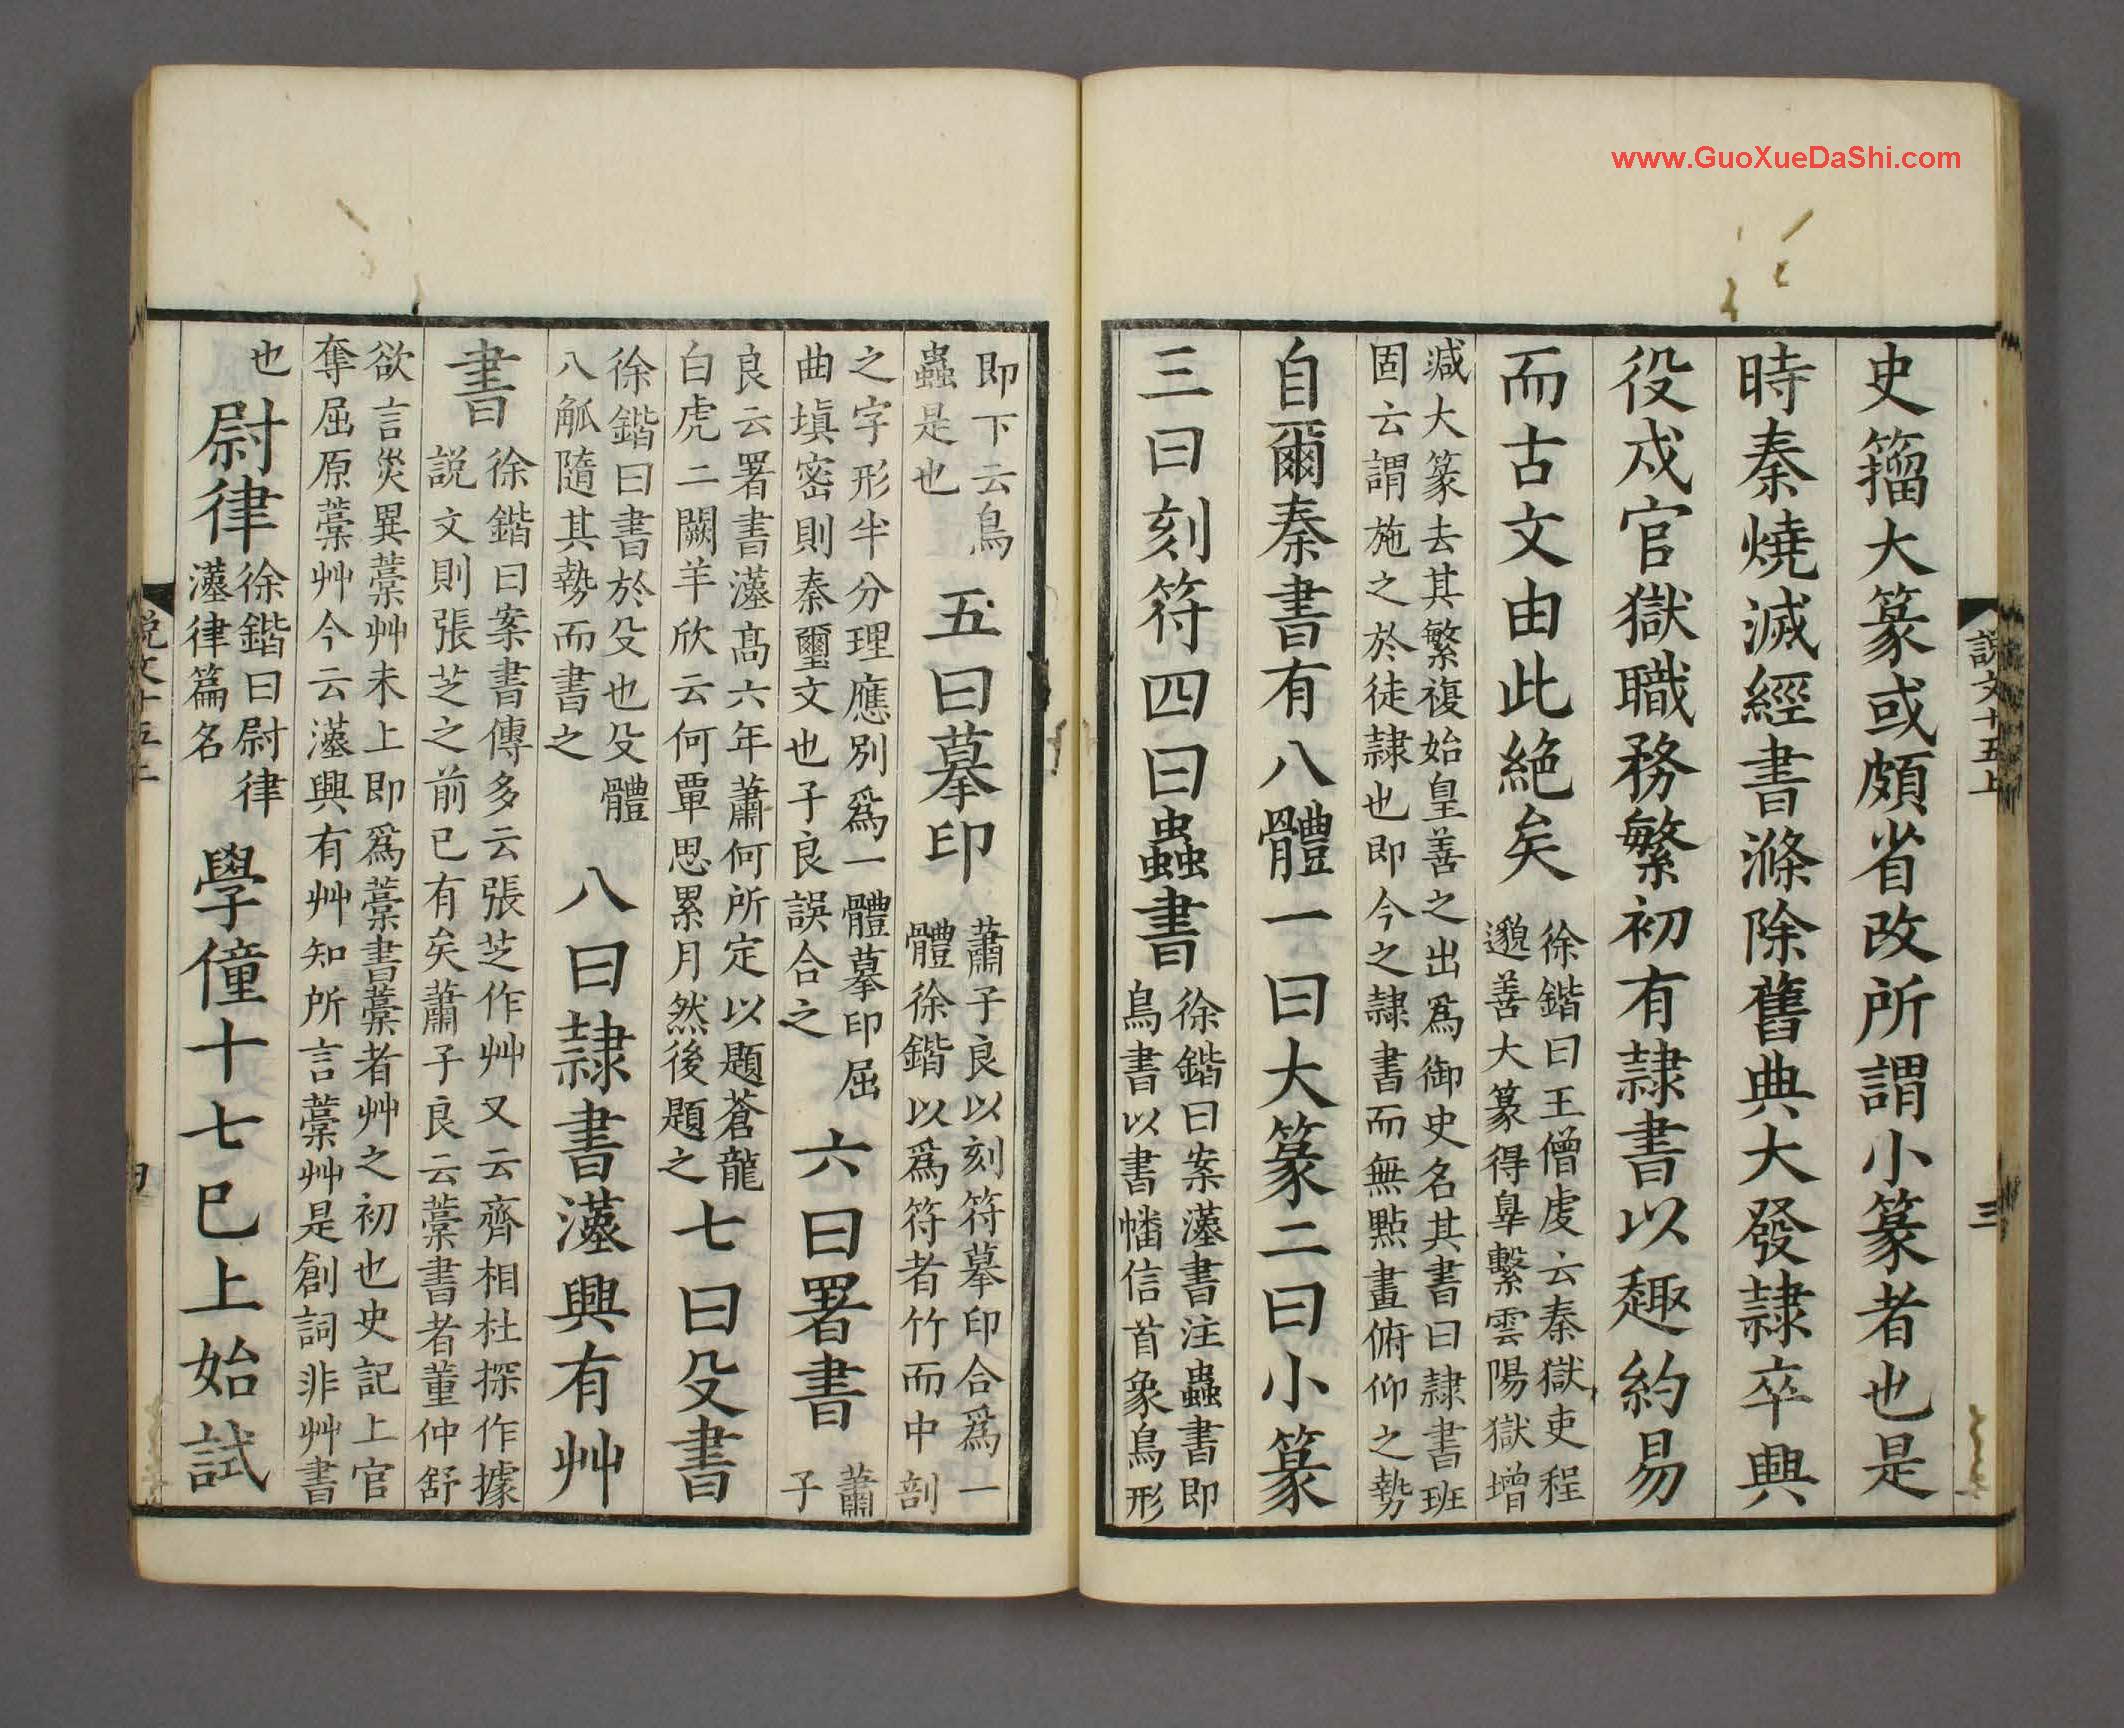 www.GuoXueDaShi.com
說文十五上
三
史籒大篆或頗省改所謂小篆者也是
時秦燒滅經書滌除舊典大發隷卒興
役戍官獄職務繁初有隷書以趣約易
而古文由此絶矣
徐鍇曰王僧虔云秦獄吏程
邈善大篆得辠繫雲陽獄增
減大篆去其繁複始皇善之出爲御史名其書曰隷書班
固云謂施之於徒隷也即今之隷書而無點畫俯仰之勢
自爾秦書有八體一曰大篆二曰小篆
三曰刻符四曰蟲書
徐鍇曰案漢書注蟲書即
鳥書以書幡信首象鳥形
即下云鳥
蟲是也
五曰摹印
蕭子良以刻符摹印合爲一
體徐鍇以爲符者竹而中剖
之字形半分理應別爲一體摹印屈
曲塡密則秦璽文也子良誤合之
六曰署書
蕭
子
良云署書漢高六年蕭何所定以題蒼龍
白虎二闕羊欣云何覃思累月然後題之
七曰殳書
徐鍇曰書於殳也殳體
八觚隨其勢而書之
八曰隷書漢興有艸
書
徐鍇曰案書傳多云張芝作艸又云齊相杜探作據
說文則張芝之前已有矣蕭子良云藁書者董仲舒
欲言災異藁艸未上即爲藁書藁者艸之初也史記上官
奪屈原藁艸今云漢興有艸知所言藁艸是創詞非艸書
也
尉律
徐鍇曰尉律
漢律篇名
學僮十七巳上始試